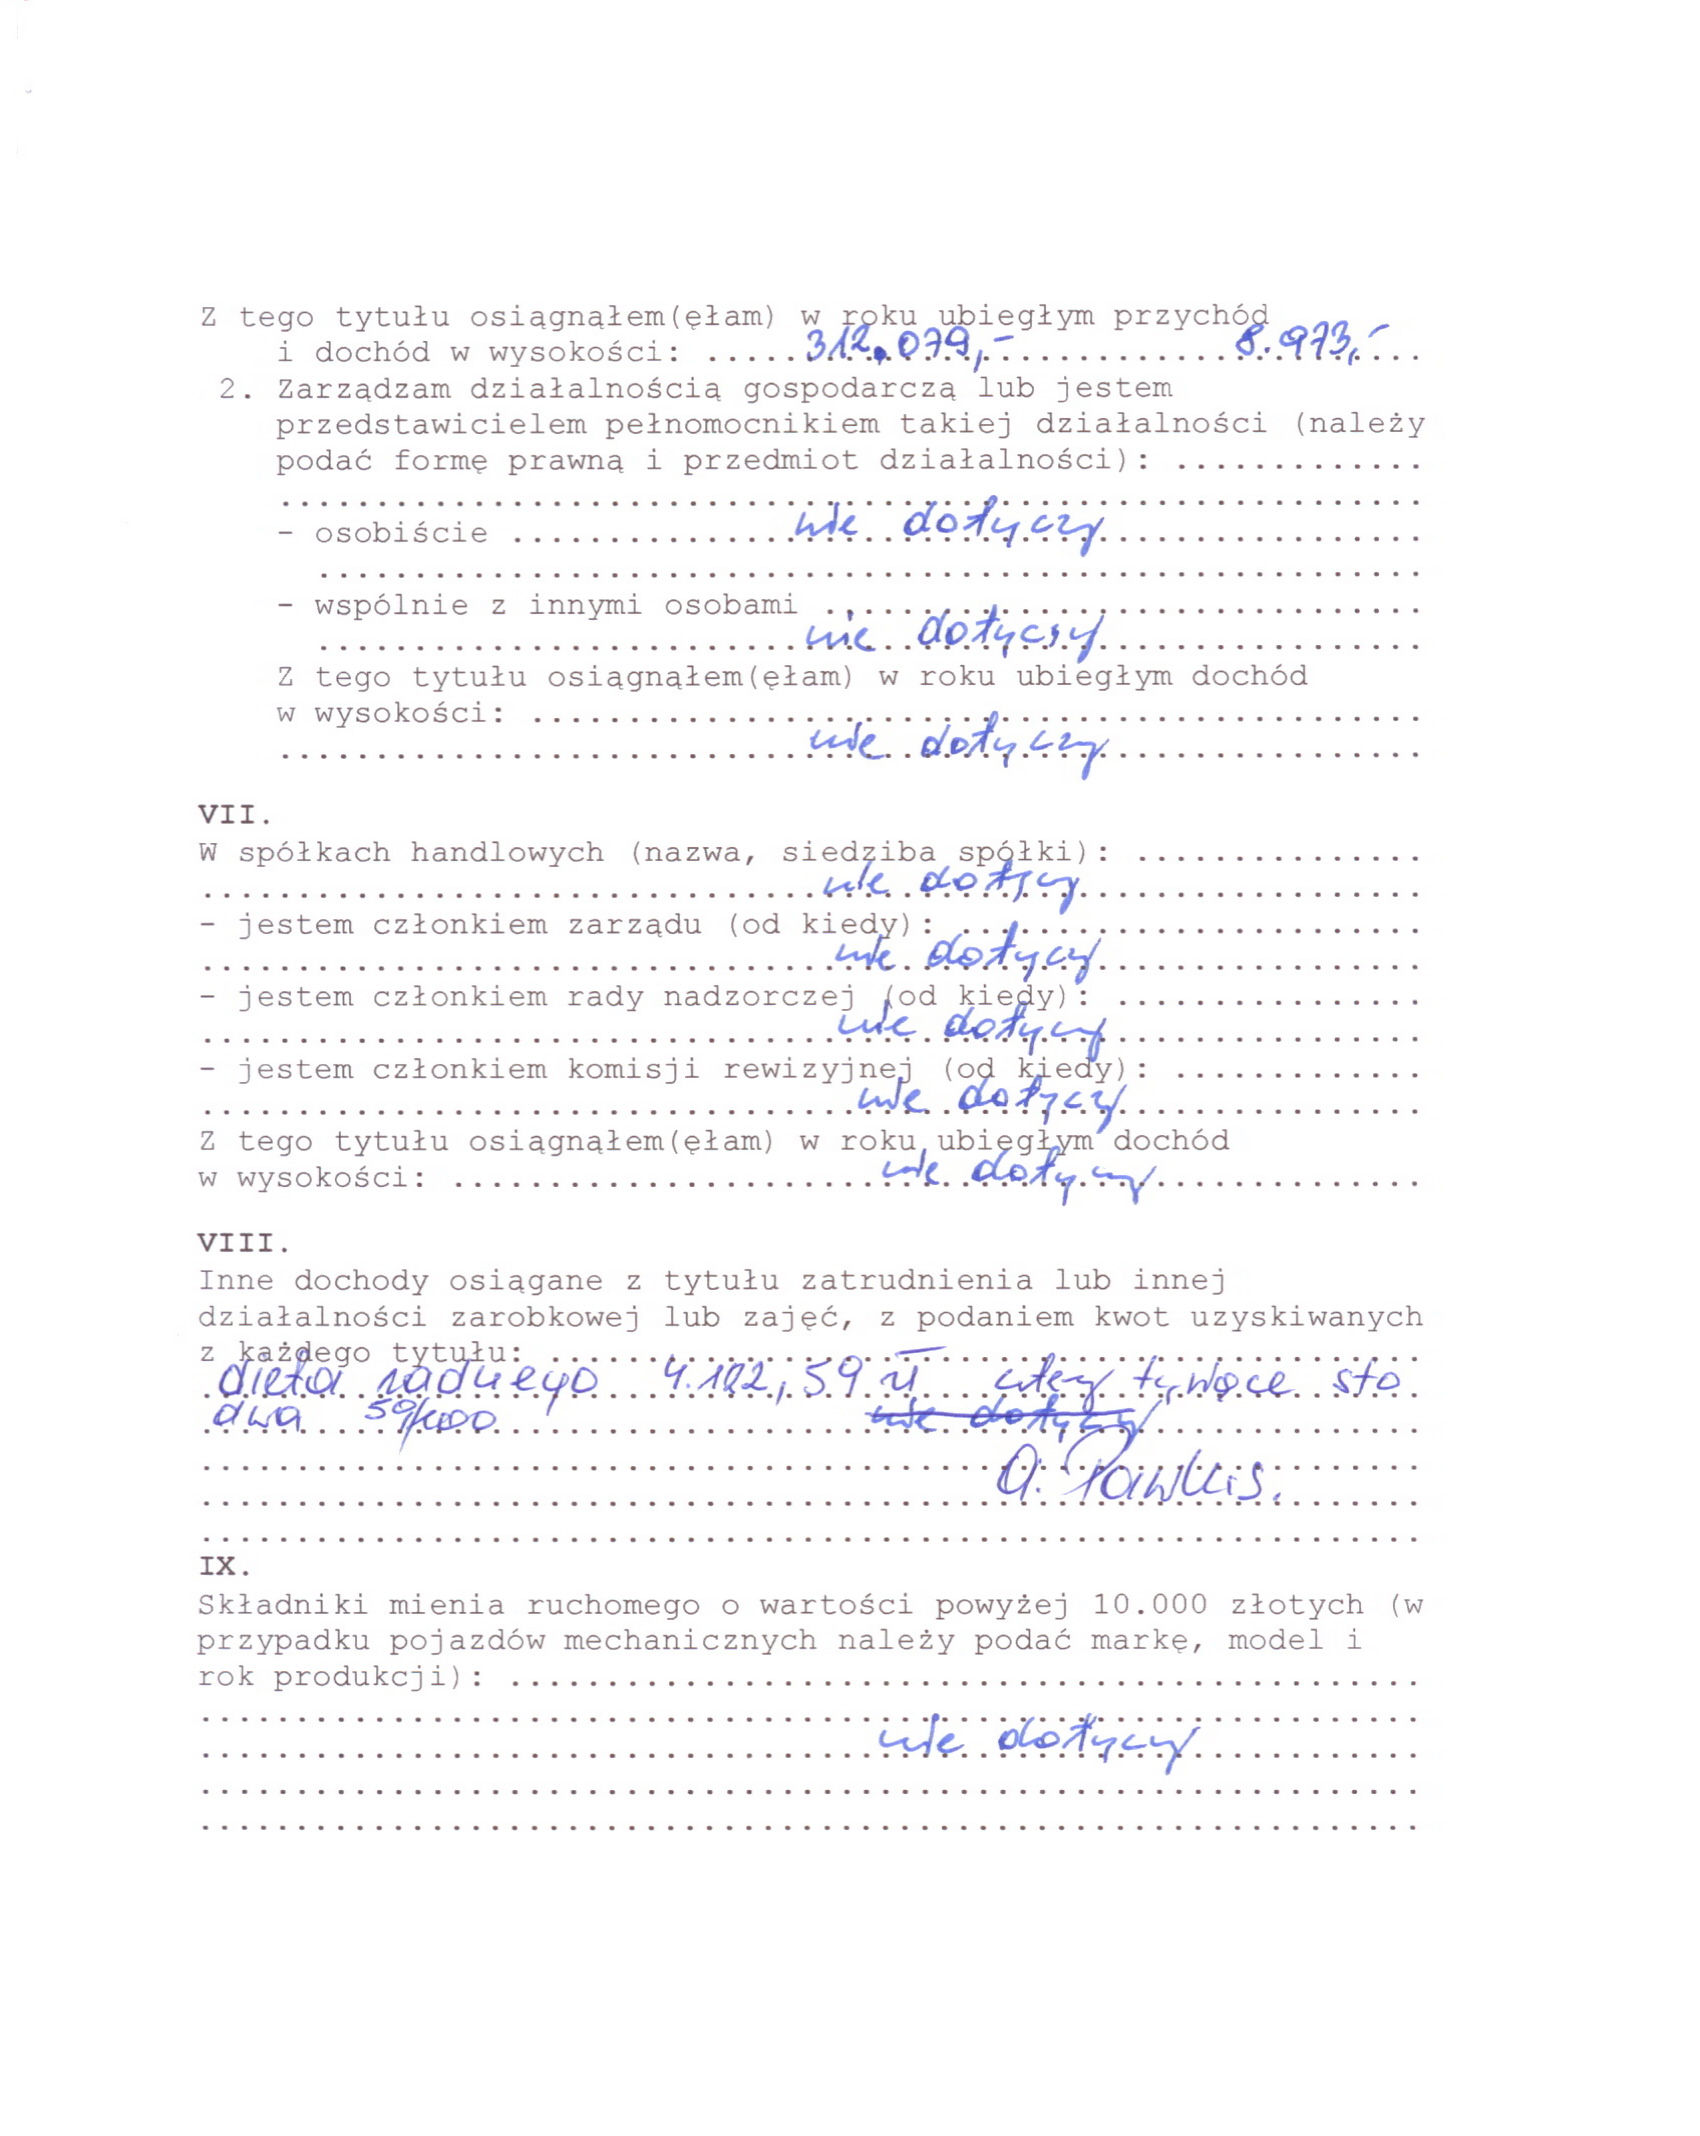 Z tego tytułu osiągnąłem(ęłam) w roku ubiegłym przychód
i dochód w wysokości: ..... 312.079,- ............ 8.973,- ....
2. Zarządzam działalnością gospodarczą lub jestem
przedstawicielem pełnomocnikiem takiej działalności (należy
podać formę prawną i przedmiot działalności): .............
............................................................
- osobiście ............... nie dotyczy .................
............................................................
- wspólnie z innymi osobami ...............................
......................... nie dotyczy .................
Z tego tytułu osiągnąłem(ęłam) w roku ubiegłym dochód
w wysokości: ..............................................
........................... nie dotyczy ................
VII.
W spółkach handlowych (nazwa, siedziba spółki): ...............
................................ nie dotyczy ..................
- jestem członkiem zarządu (od kiedy): ........................
................................. nie dotyczy .................
- jestem członkiem rady nadzorczej (od kiedy): ................
................................. nie dotyczy ................
- jestem członkiem komisji rewizyjnej (od kiedy): .............
.................................. nie dotyczy ...............
Z tego tytułu osiągnąłem(ęłam) w roku ubiegłym dochód
w wysokości: ...................... nie dotyczy ..............
VIII.
Inne dochody osiągane z tytułu zatrudnienia lub innej
działalności zarobkowej lub zajęć, z podaniem kwot uzyskiwanych
z każdego tytułu: .............................................
dieta radnego 4.102,59 zł cztery tysiące sto
dwa 59/100 nie dotyczy
A. Pawlus.
...............................................................
IX.
Składniki mienia ruchomego o wartości powyżej 10.000 złotych (w
przypadku pojazdów mechanicznych należy podać markę, model i
rok produkcji): ...............................................
...............................................................
................................... nie dotyczy ............
...............................................................
...............................................................